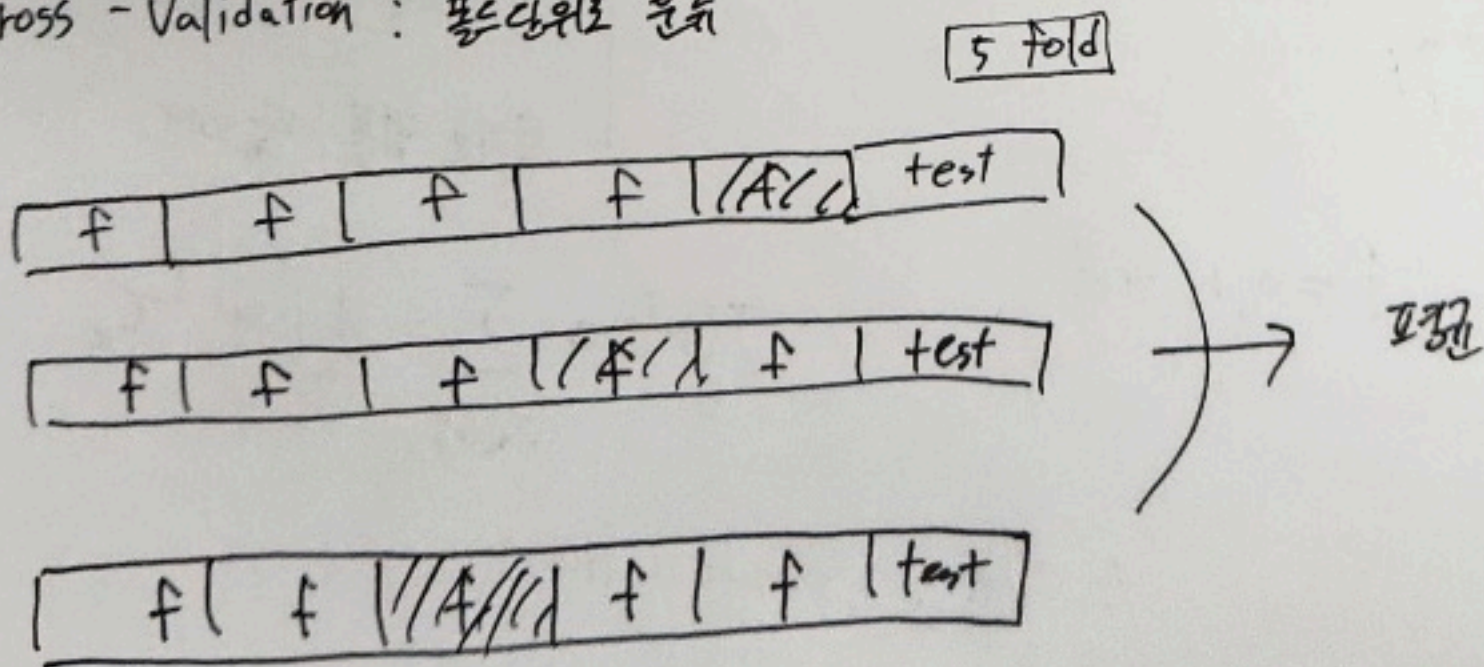 ross - Validation : 폴드단위로 분류
5 fold
f f f f f test
f f f f f test
평균
f f f f f test